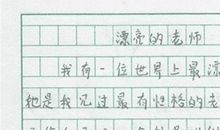 漂亮的老师
我有一位世界上最漂
她是我见过最有性格的老